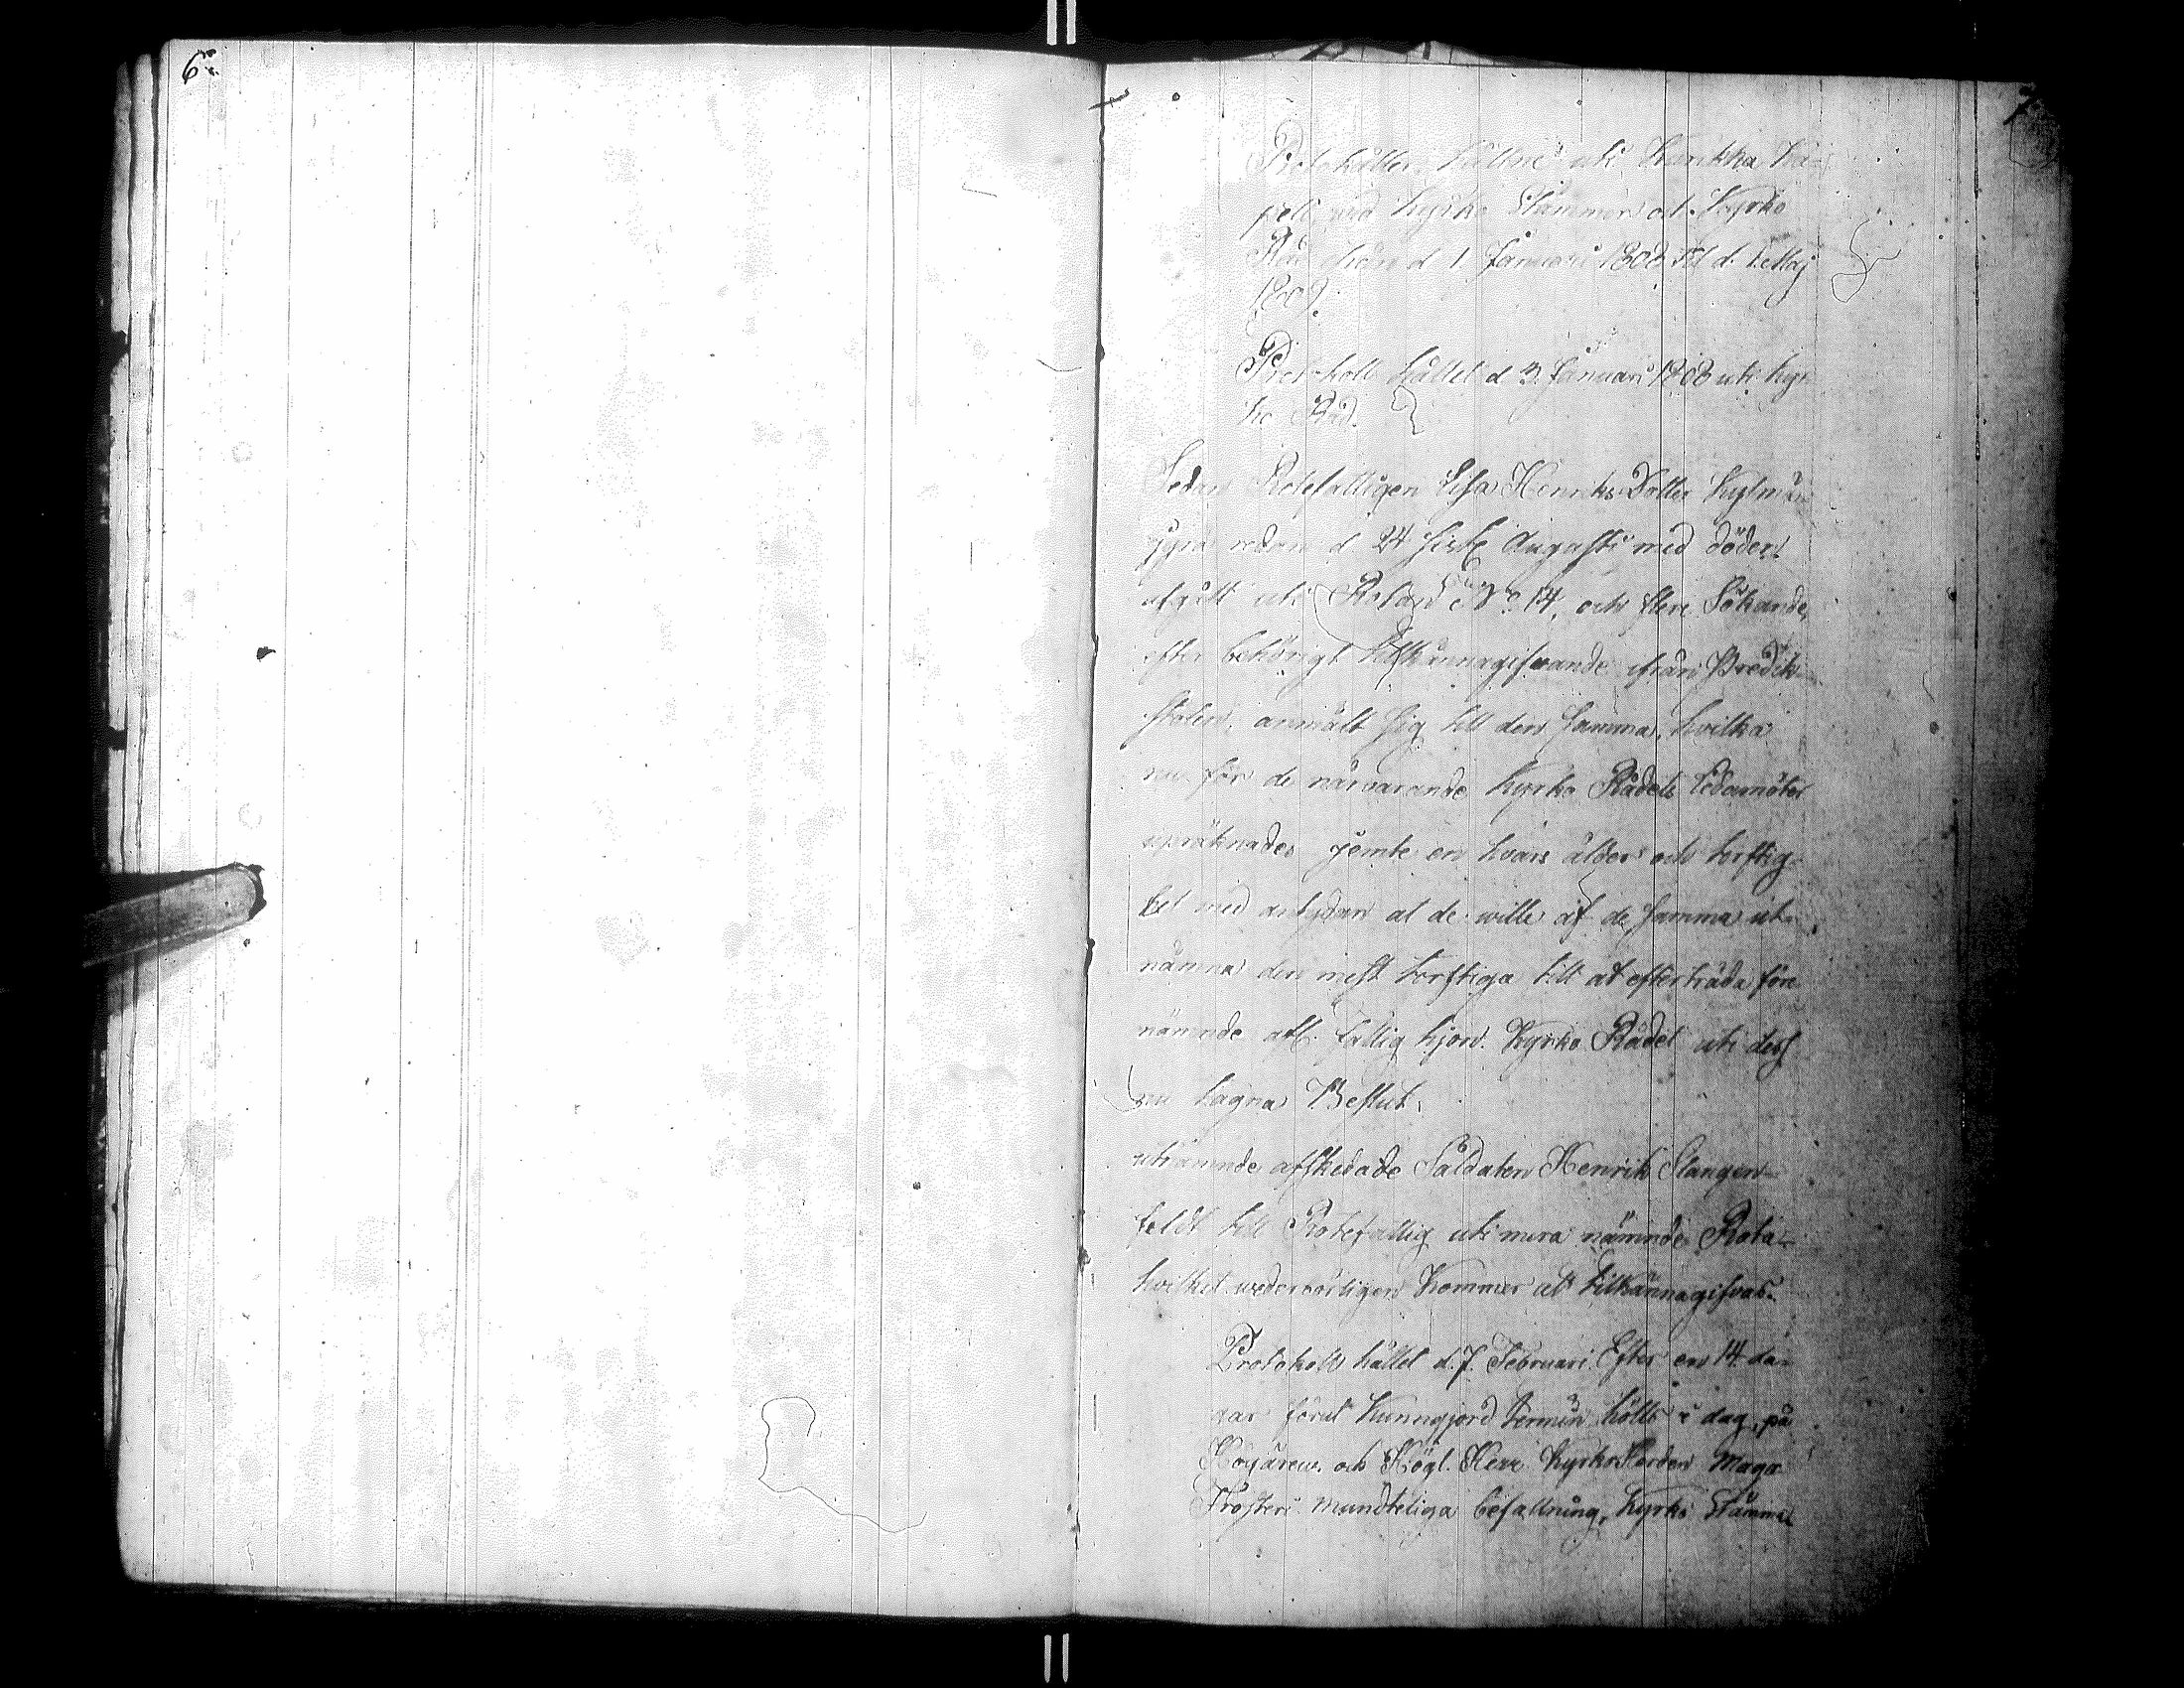 6.
7.
Protokoller hållne uti Kurikka Ka-
pell vid Kyrko Stämmor och Kyrko
Råd ifrån d 1. Januari 1808 till d. 1. Maj
1809.
Protokoll hållet d 3. Januari 1808 uti Kyr-
ko Råd.
Sedan Rotefattigen Lisa Henriks Dotter
redan d 24 sistl. Augusti med döden
afgått uti Rotan No 14, och flere Sökande,
efter behörigt tillkännagifvande ifrån Predik-
stolen, anmält sig till den samma, hvilka
nu för de närvarande Kyrko Rådets Ledamöter
upräknades jemte en hvars ålder och torftig-
het med antydan at de wille af de samma ut-
nämna den mest torftiga till at efterträda före
nämnde afl. fattig hjon. Kyrko Rådet uti dess
nu tagna Beslut,
utnämnde afskedade Såldaten Henrik Slangen-
feldt till Rotefattig uti mera nämnde Rota
hvilket wederbörligen kommer at tillkännagifvas.
Protokoll hållet d. 7. Februari. Efter en 14 da-
gar förut kunngjord termin hölts i dag, på
Högärew. och Högl. Herr KyrkoHerden Mag.
Frosteri mundteliga befallning, Kyrko Stämma